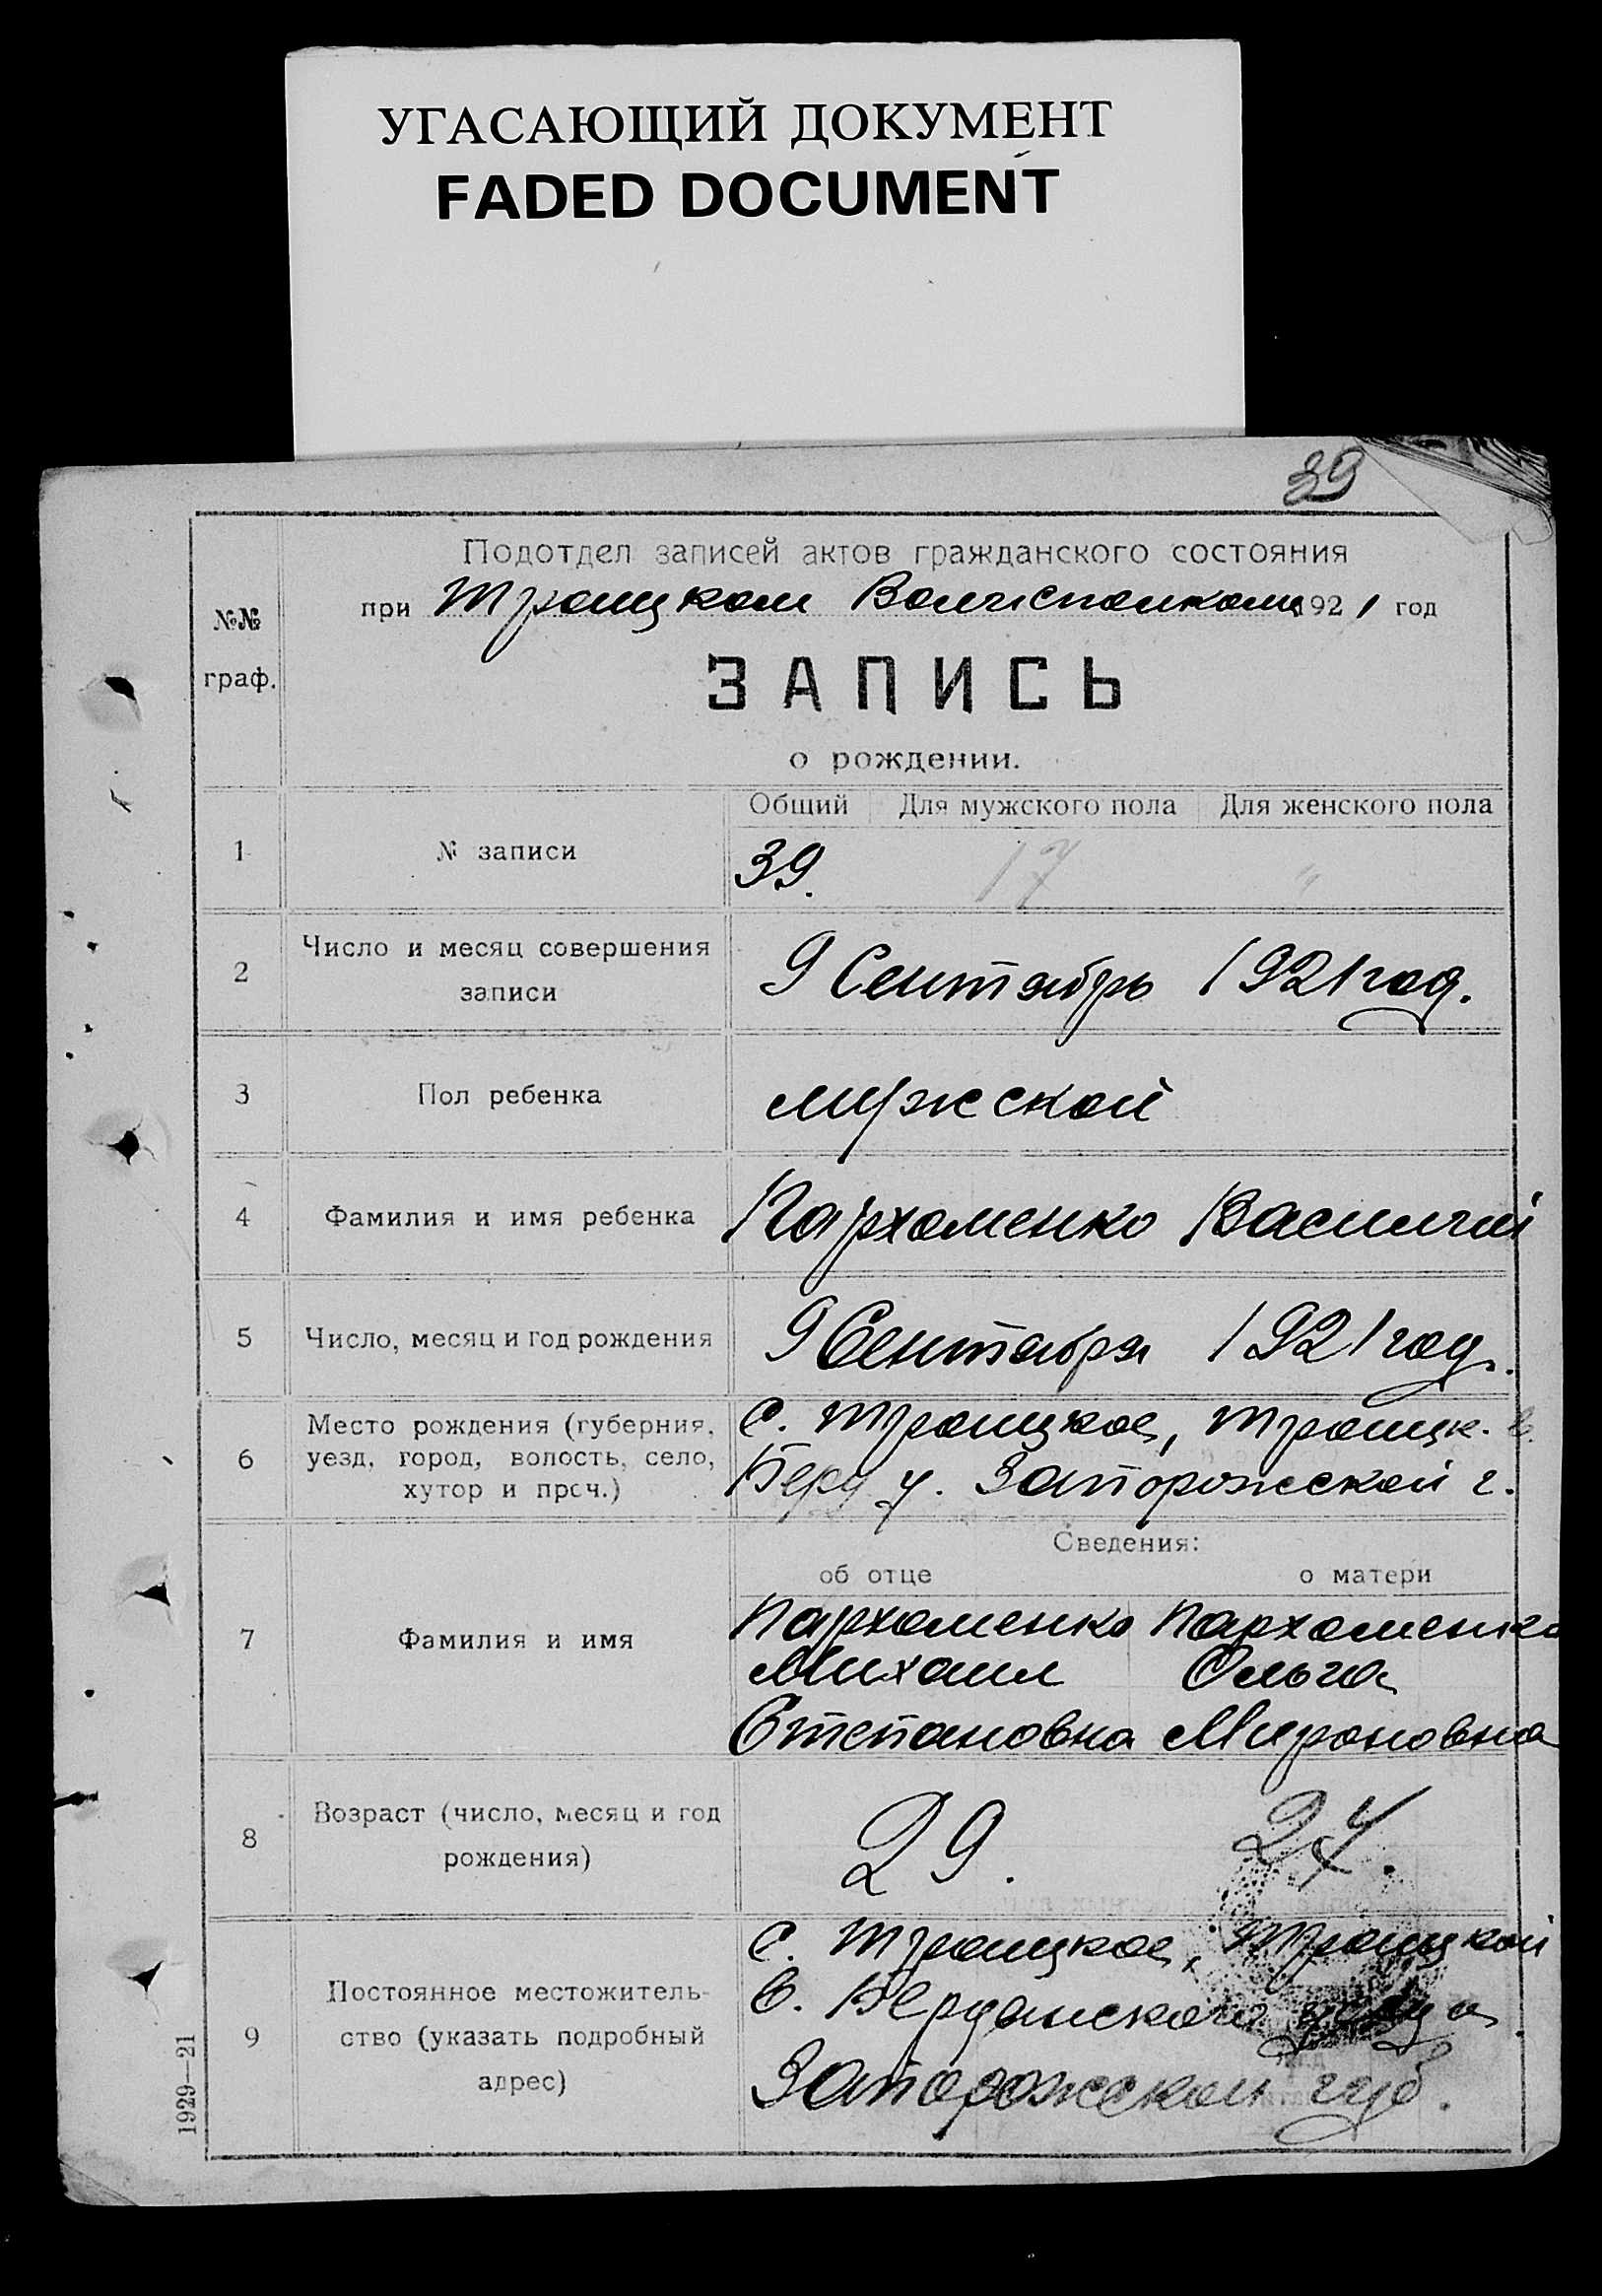 УГАСАЮЩИЙ ДОКУМЕНТ
FADED DOCUMENT
39
Подотдел записей актов гражданского состояния
№№ граф.
при Троицком Волисполкоме 1921 год
ЗАПИСЬ
о рождении.
Общий Для мужского пола Для женского пола
1 № записи 39. 17 "
2 Число и месяц совершения
записи
9 Сентябрь 1921 год.
3 Пол ребенка мужской
4 Фамилия и имя ребенка Пархоменко Василий
5 Число, месяц и год рождения 9 Сентября 1921 год.
6 Место рождения (губерния,
уезд, город, волость, село,
хутор и проч.)
с. Троицкое, Троицк. в.
Берд у. Запорожской г.
Сведения:
об отце о матери
7 Фамилия и имя
Пархоменко Пархоменко
Михаил Ольга
Степановна Мироновна
8 Возраст (число, месяц и год
рождения)
29. 24.
9 Постоянное местожитель-
ство (указать подробный
адрес)
с. Троицкое, Троицкой
в. Бердянского уезда
Запорожской губ.
1929—21